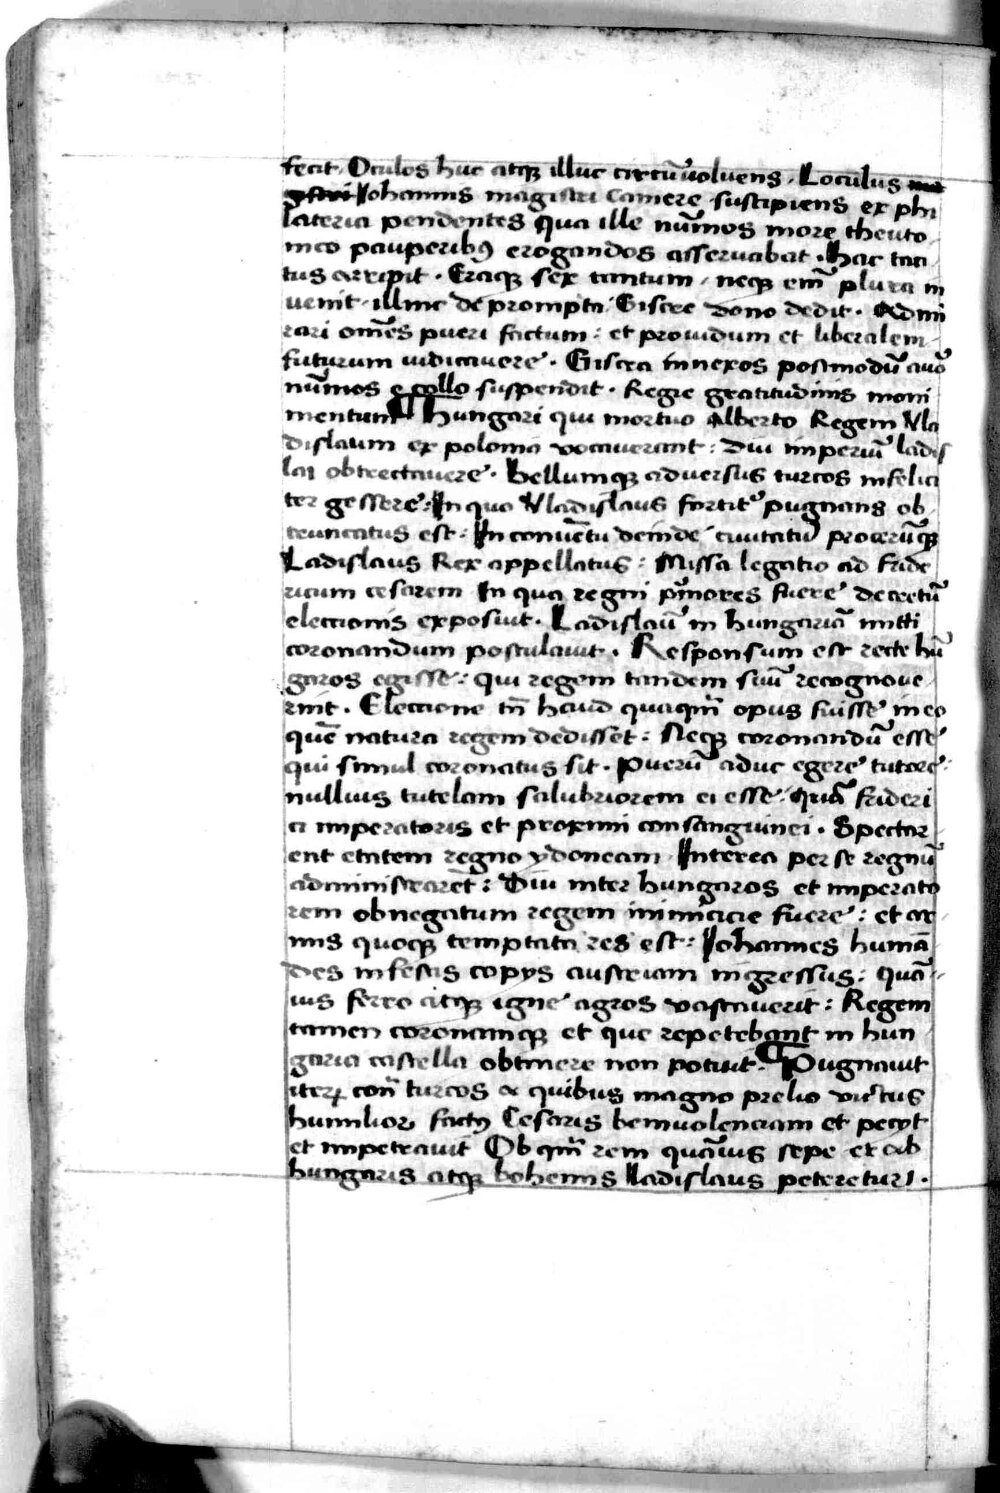 fecit · Oculos huc atq̃ illuc circũuoluens · Loculus ma
gistri Johannis magistri camere suscipiens ex phi
lateria pendentes Qua ille nũmos more theuto
nico pauperibꝰ erogandos asseruabat · Hac tac
tus arripit · Eraq̃ sex tantum · neq̃ em̃ plura in
uenit · illinc de prompta Giscre dono dedit · Admi
rari om̃es pueri factum : et prouidum et liberalem
futurum iudicauere · Giscra innexos postmodũ auõ
nũmos e collo suspendit · Regie gratitudinis moni
mentum ¶ Hungari qui mortuo Alberto Regem Vla
dislaum ex polonia vocauerant : diu imperiũ ladis
lai obtrectauere · Bellumq̃ aduersus turcos infelici
ter gessere : In quo Vladislaus fortit᷑ pugnans ob
truncatus est : In conuẽtu deinde ciuitatũ procerũq̃
Ladislaus Rex appellatus : Missa legatio ad fride
ricum cesarem In qua regni p̃mores fuere decretũ
electionis exposuit · Ladislaũ in hungariã mitti
coronandum postulauit · Responsum est recte hũ
garos egisse : qui regem tandem suũ recognoue
rint · Electione tñ haud quaq̃m opus fuisse in eo
quẽ natura regem dedisset : Neq̃ coronandũ esse
qui simul coronatus sit · Puerũ aduc egere tutore :
nullius tutelam salubriorem ei esse · quã frideri
ci imperatoris et proximi consanguinei · Spectar
ent etatem regno ydoneam · Interea per se regnũ
administraret : Diu inter hungaros et imperato
rem obnegatum regem inimicicie fuere : et ar
mis quoq̃ temptata res est : Johannes huniã
des infestis copÿs austriam ingressus : quã
uis ferro atq̃ igne agros vastauerit : Regem
tamen coronamq̃ et que repetebant in hun
garia castella obtinere non potuit · ¶ Pugnauit
iterꝝ con̄ turcos a quibus magno prelio victus
humilior factꝰ Cesaris beniuolenciam et pecÿt
et impetrauit Ob q̃m rem quãuis sepe et ab
hungaris atq̃ bohemis Ladislaus peteretur ·